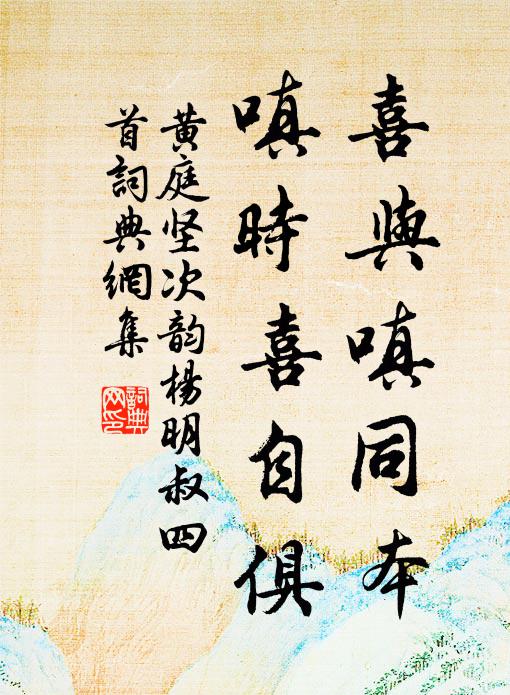 喜與嗔同本
嗔時喜自俱
黄庭坚次韵楊明叔四
首詞典網集
詞典
网印